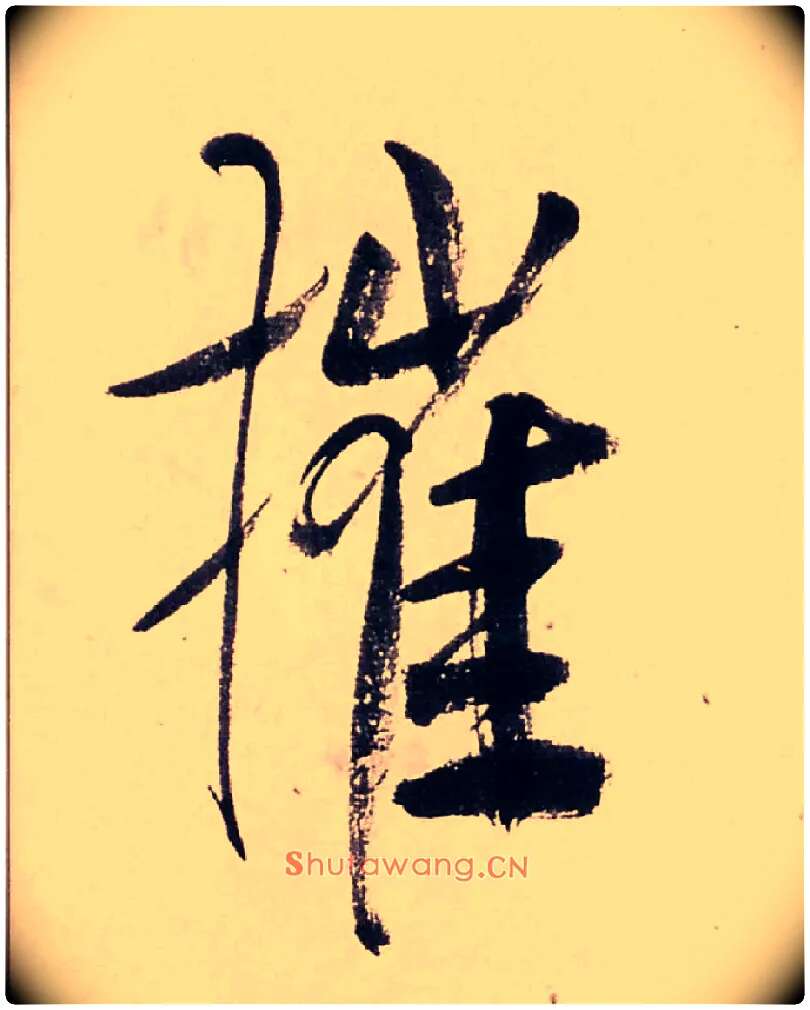 摧
Shufawang.CN